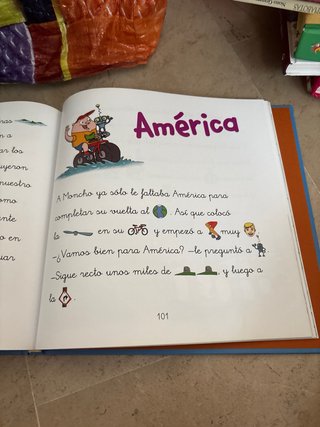 América
A Moncho ya sólo le faltaba América para
completar su vuelta al . Así que colocó
la en su y empezó a muy
-¿Vamos bien para América? -le preguntó a
-Sigue recto unos miles de , y luego a
la .
101
ras
n a
ar los
uyeron
nuestro
como
ente
o en
uar